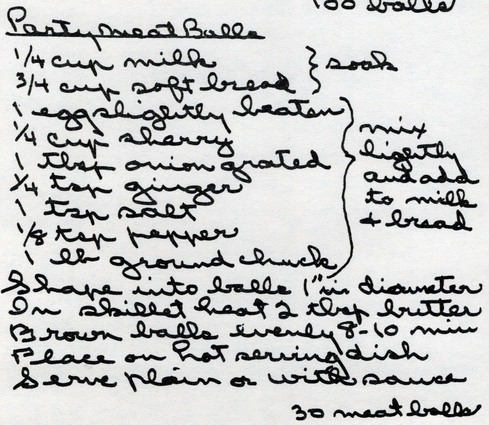 100 balls
Party Meat Balls
1/4 cup milk
3/4 cup soft bread } soak
1 egg slightly beaten
1/4 cup sherry
1 tbsp onion grated
1/4 tsp ginger
1 tsp salt
1/8 tsp pepper
1 lb ground chuck
} mix
lightly
and add
to milk
& bread
Shape into balls 1" in diameter
In skillet heat 2 tbsp butter
Brown balls evenly 8-10 min
Place on hot serving dish
Serve plain or with sauce
30 meat balls